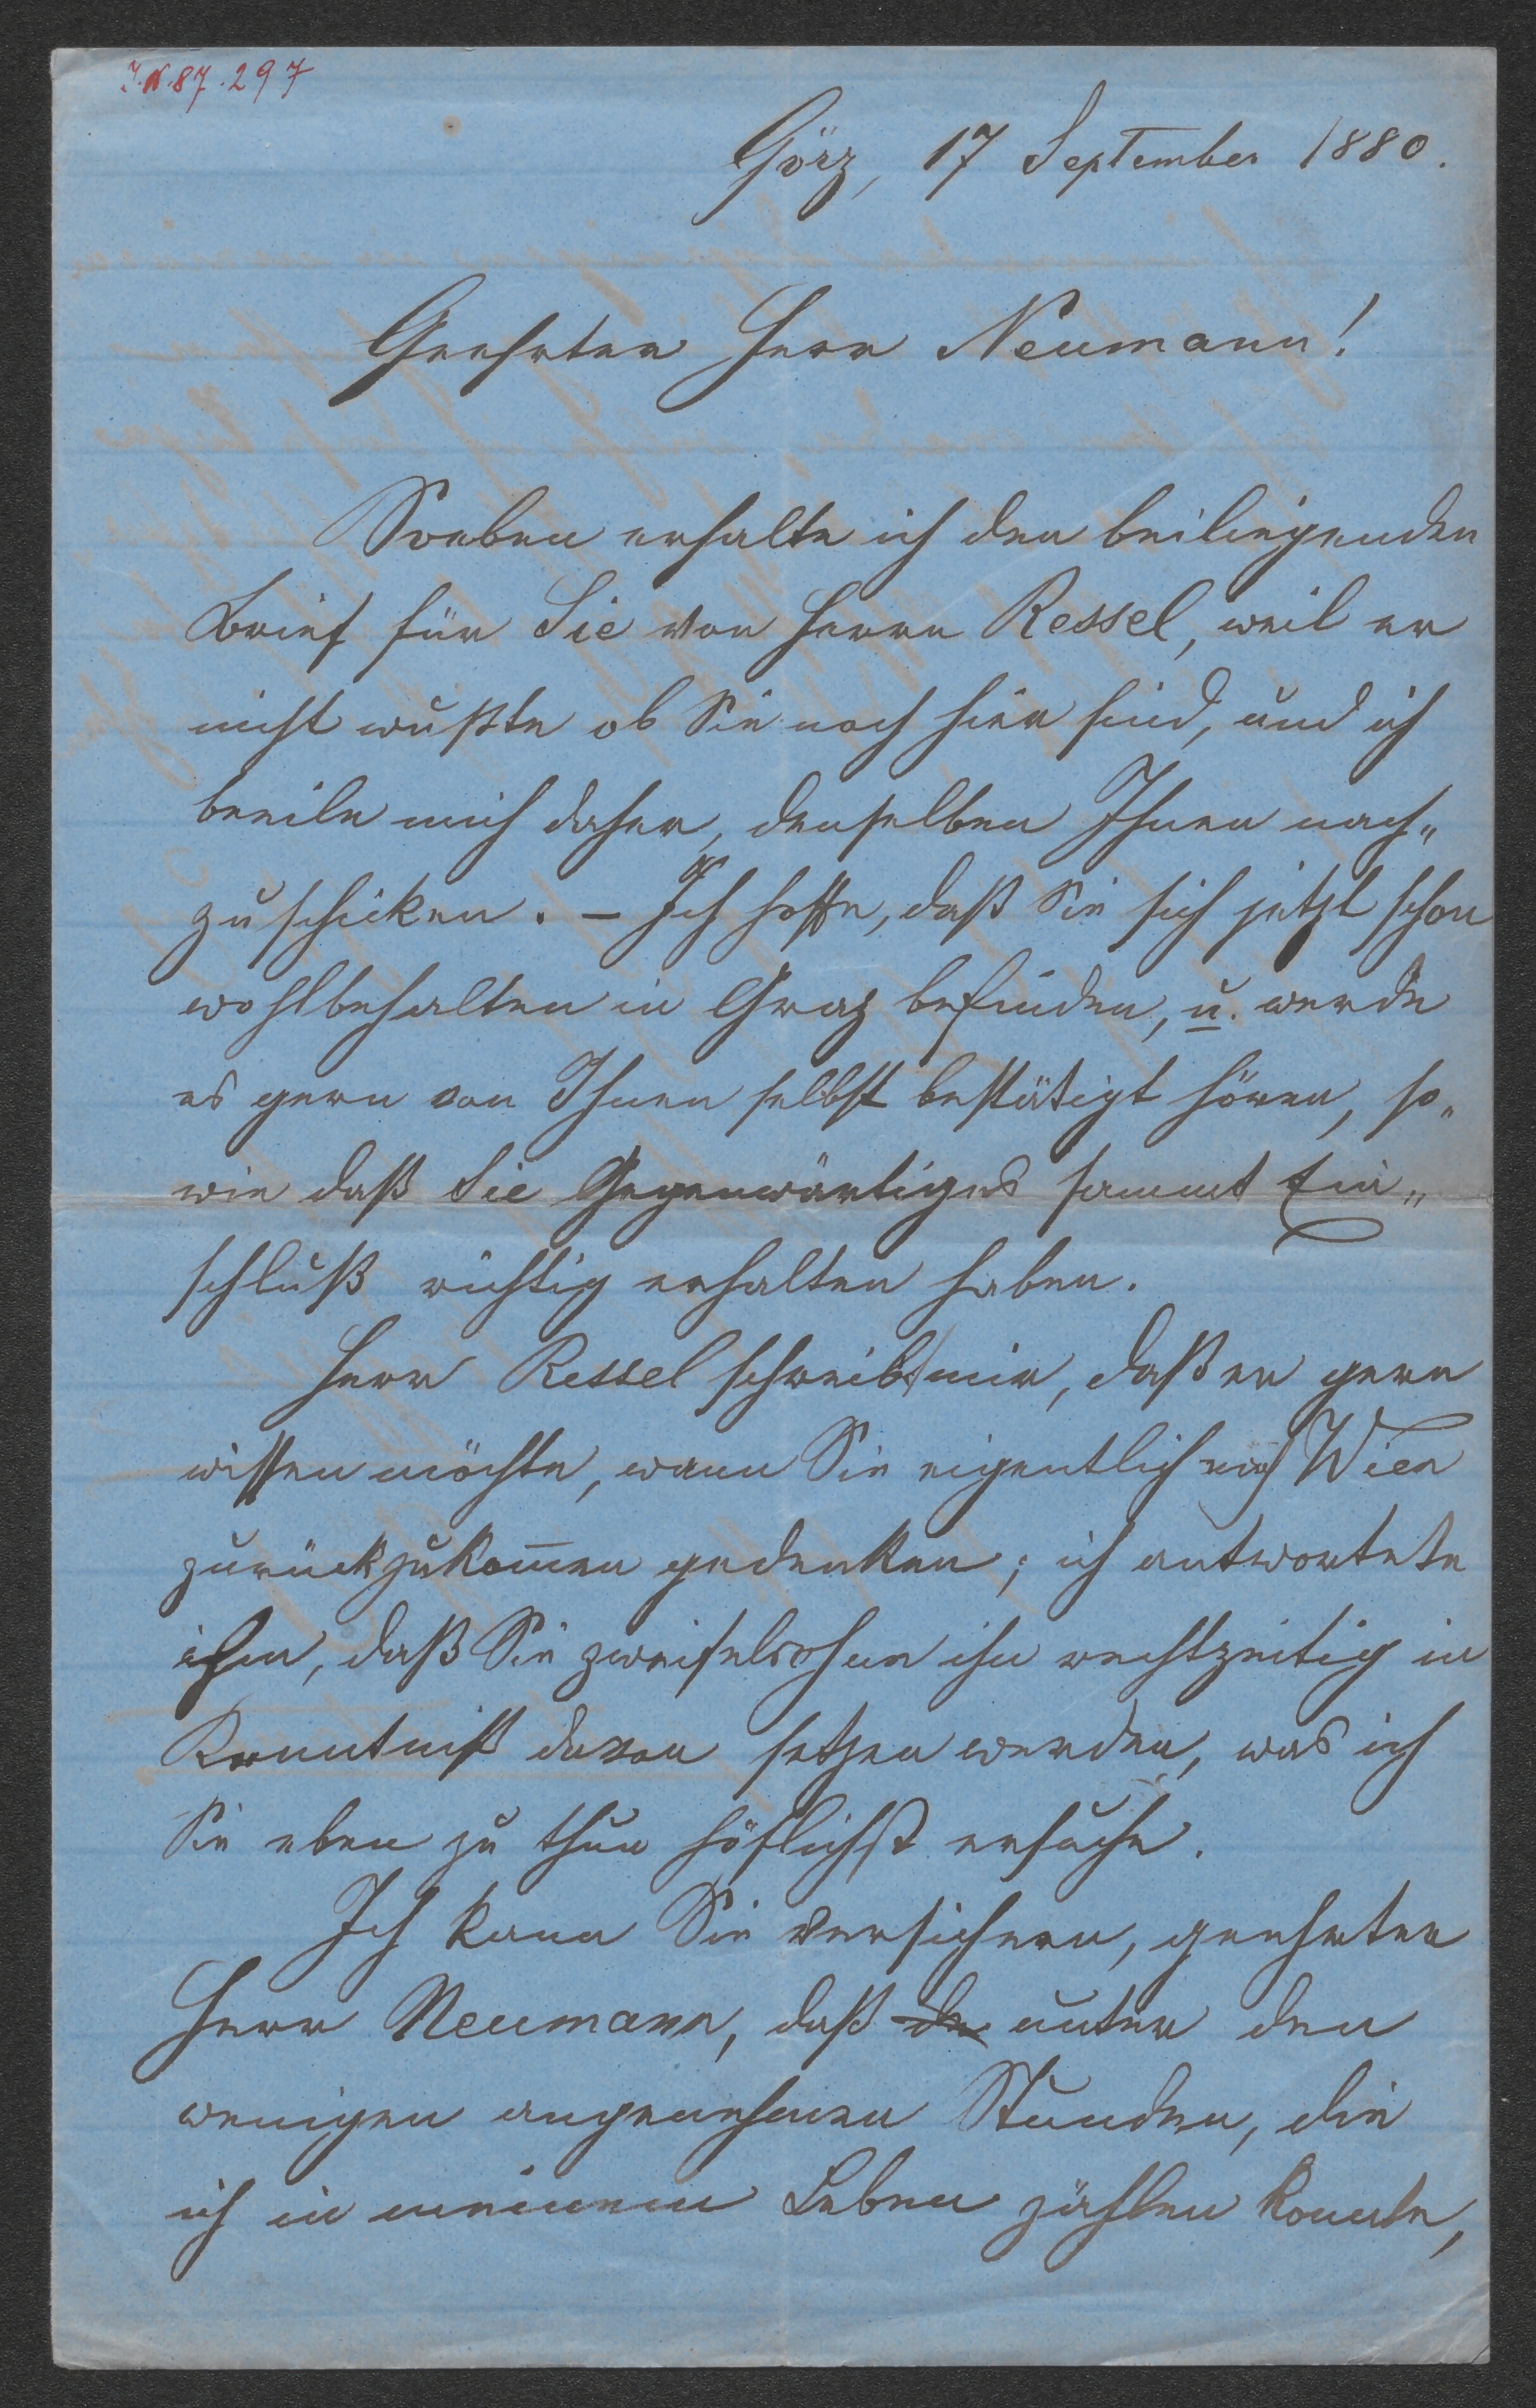 I.N.87.297
Görz, 17 September 1880.
Geehrter Herr Neumann!
Soeben erhalte ich den beiliegenden
Brief für Sie von Herrn Ressel, weil er
nicht wußte ob Sie noch hier sind, und ich
beeile mich daher, denselben Ihnen nach„
zuschicken. – Ich hoffe, daß Sie sich jetzt schon
wohlbehalten in Graz befinden, u. werde
es gern von Ihnen selbst bestätigt hören, so„
wie daß Sie Gegenwärtiges sammt Ein„
schluß richtig erhalten haben.
Herr Ressel schreibt mir, daß er gern
wissen möchte, wann Sie eigentlich nach Wien
zurückzukom̄en gedenken; ich antwortete
ihm, daß Sie zweifelsohne ihn rechtzeitig in
Kenntniß davon setzen werden, was ich
Sie eben zu thun höflichst ersuche.
Ich kann Sie versichern, geehrter
Herr Neumann, daß de unter den
wenigen angenehmen Stunden, die
ich in meinem Leben zählen konnte,